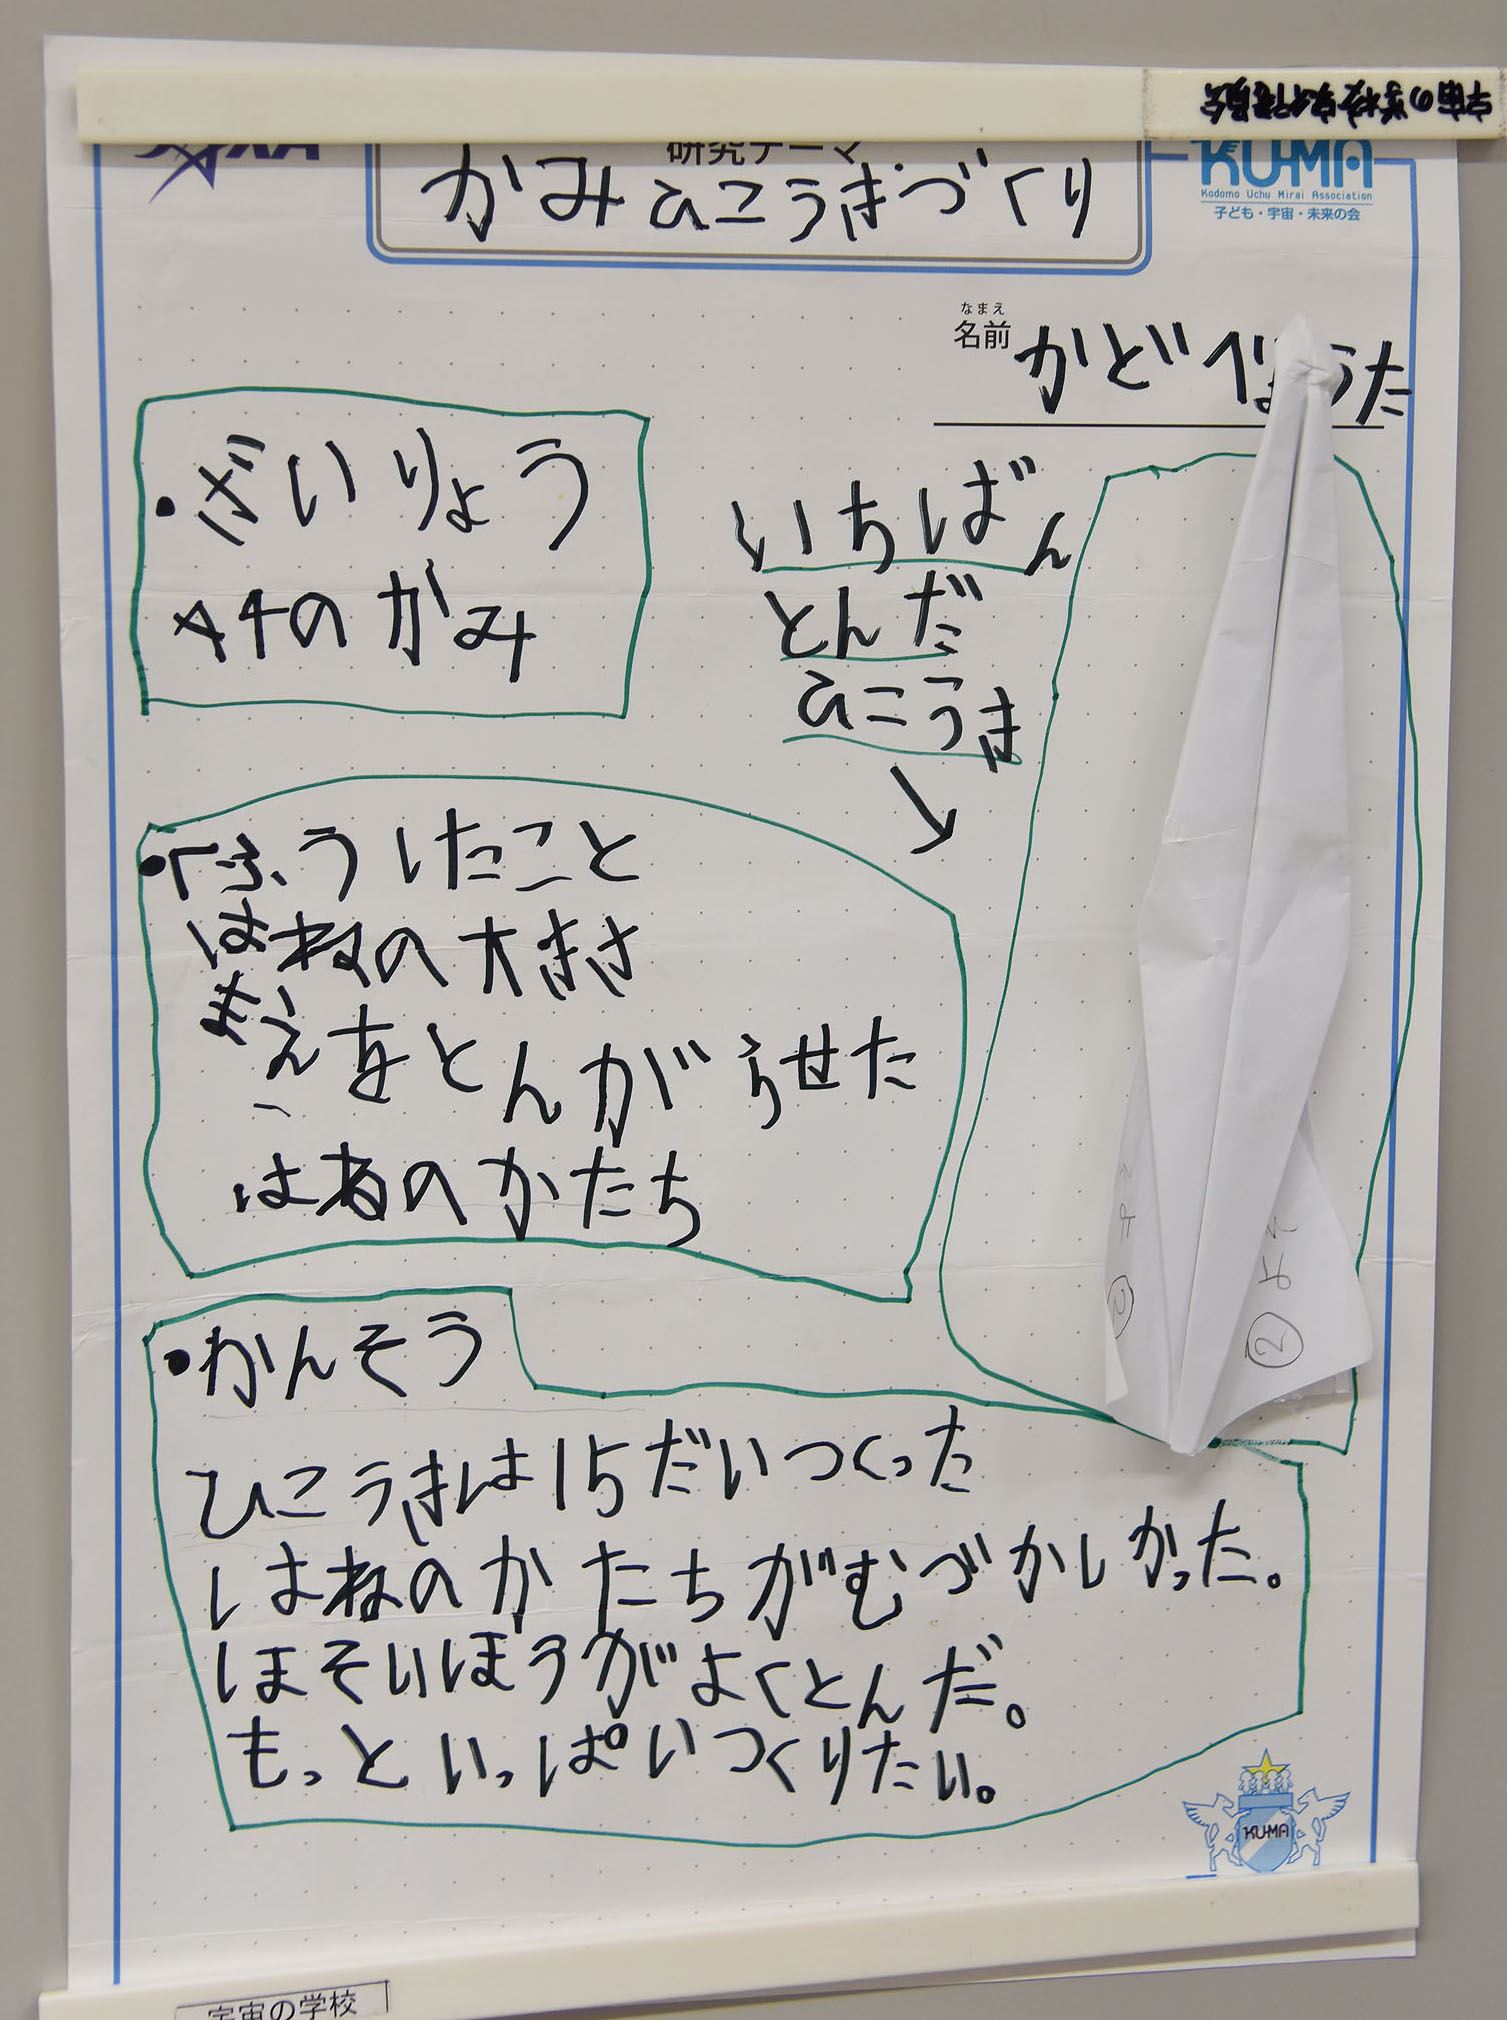 研究テーマ
かみひこうきづくり
KU-MA
Kodomo Uchu Mirai Association
子ども・宇宙・未来の会
なまえ
名前
・ざいりょう
A4のかみ
いちばん
とんだ
ひこうき
↓
・くふうしたこと
はねの大きさ
まえをとんがらせた
はねのかたち
・かんそう
ひこうきは15だいつくった
はねのかたちがむづかしかった。
ほそいほうがよくとんだ。
もっといっぱいつくりたい。
②
②
KU-MA
宇宙の学校